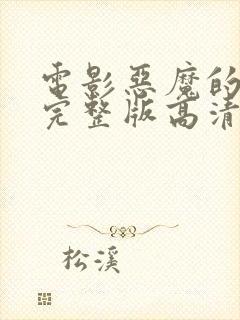 電影惡魔的
完整版高清
松溪